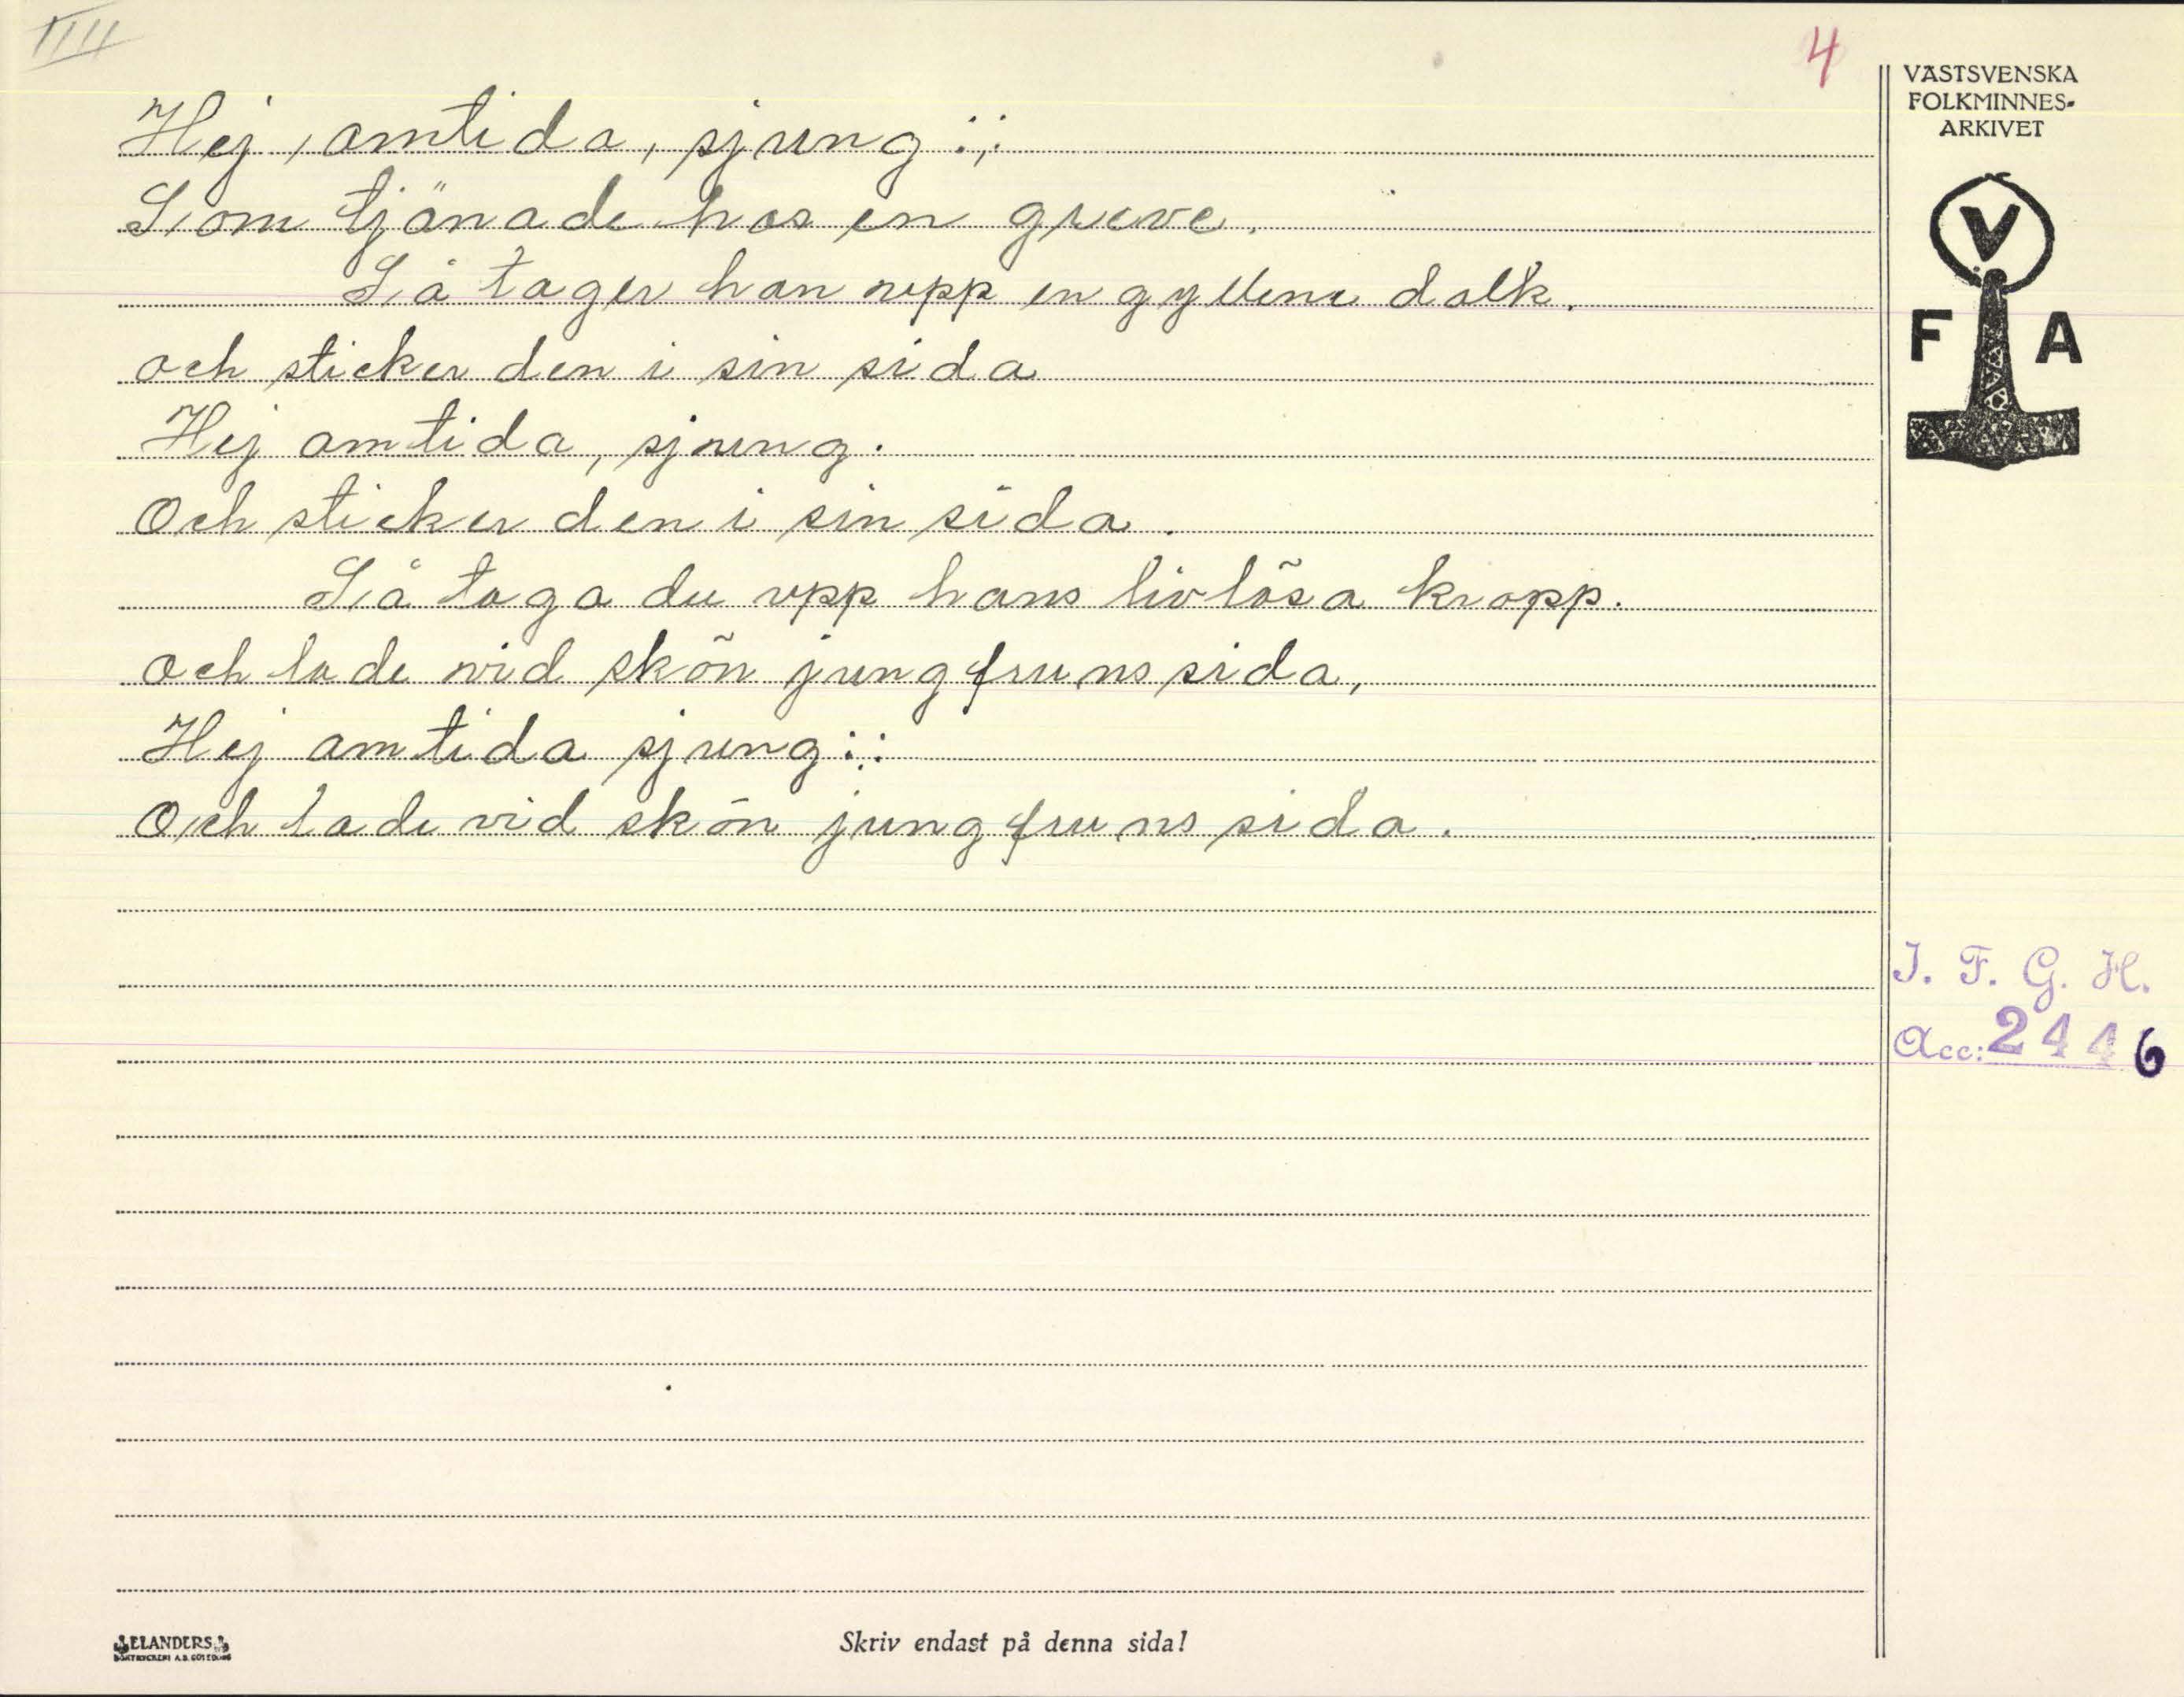 IIII
4
Hej, amtida, sjung :,:
Som tjänade hos en greve.
Så tager han upp en gyllene dolk.
och sticker den i sin sida
Hej amtida, sjung.
Och sticker den i sin sida.
Så toga du upp hans livlösa kropp.
och lade vid skön jungfruns sida,
Hej amtida sjung :,:
Och lade vid skön jungfruns sida.
VÄSTSVENSKA
FOLKMINNES-
ARKIVET
V
F A
I. F. G. H.
Acc: 2446
ELANDERS
BOKTRYCKERI A.B. GÖTEBORG
Skriv endast på denna sida!